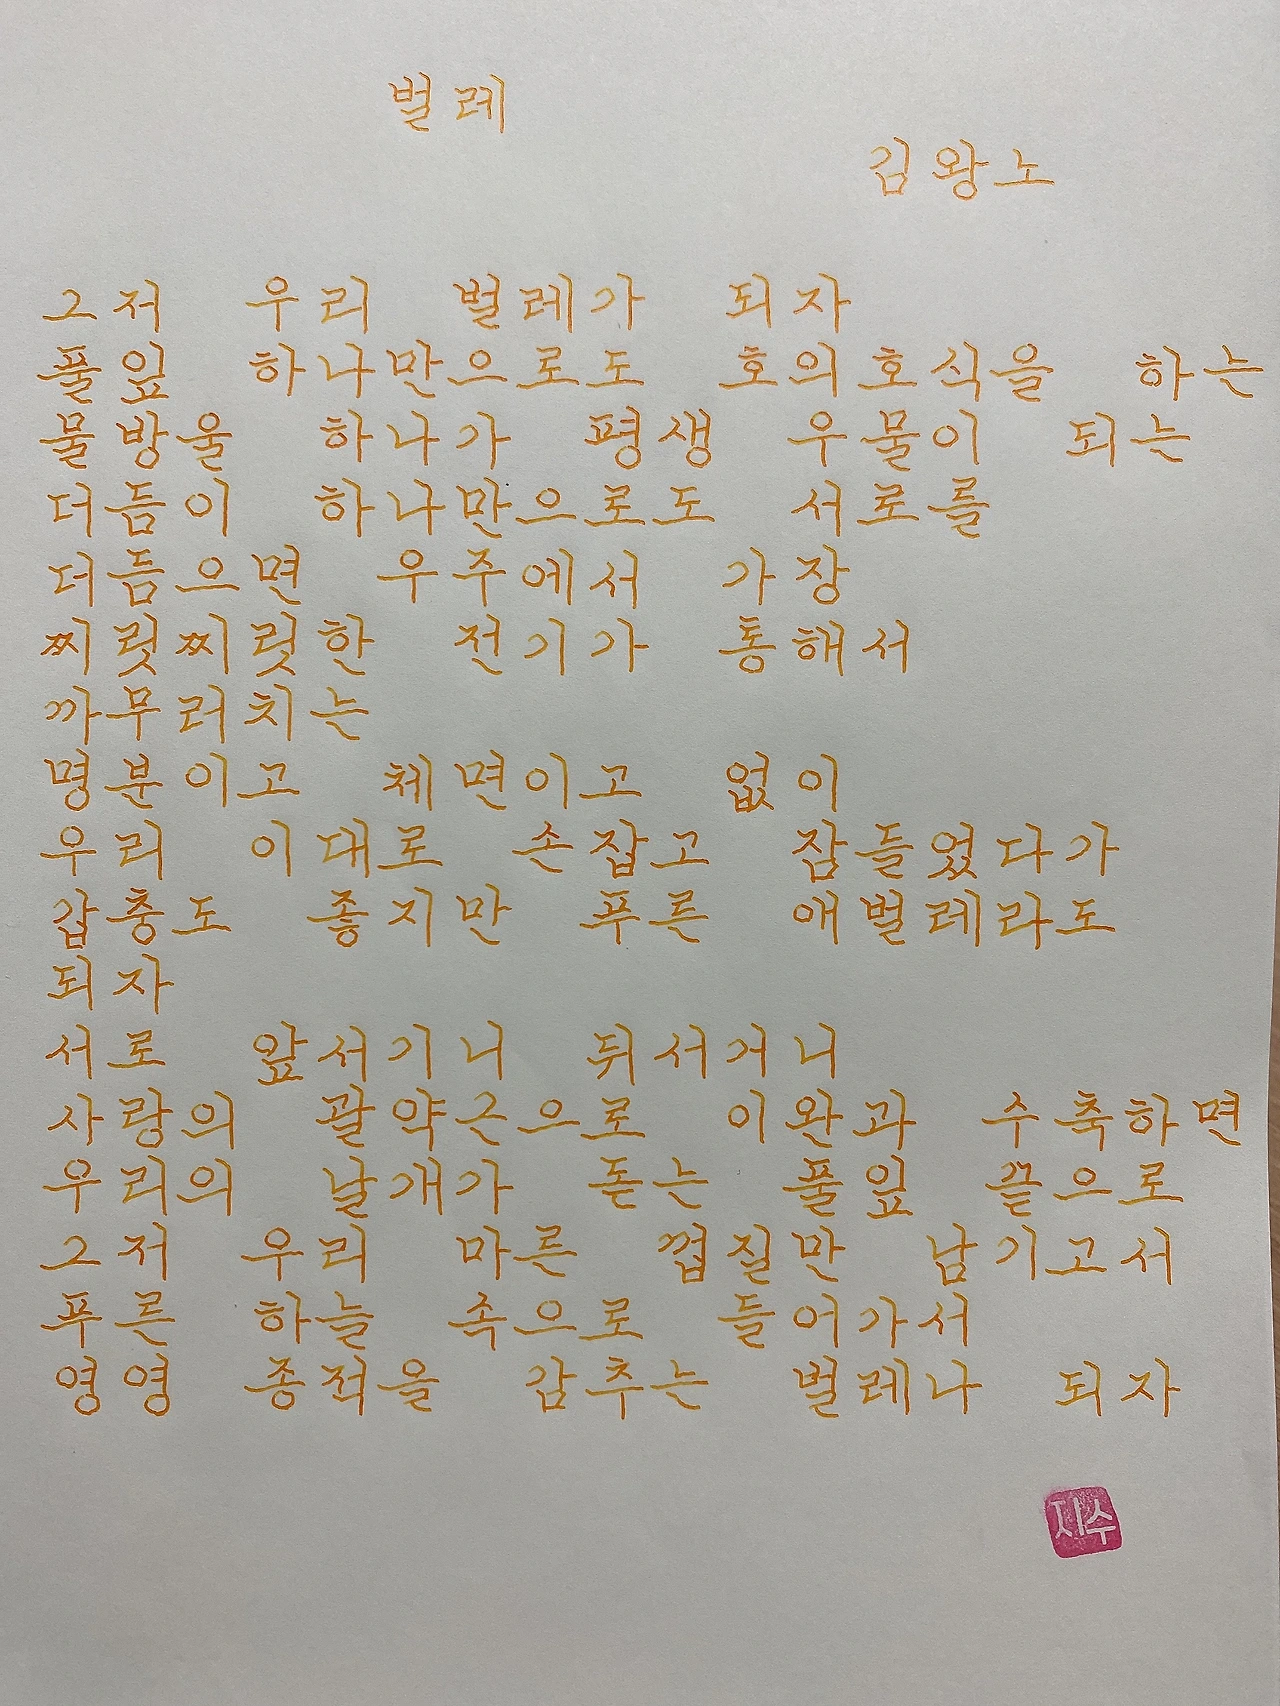 벌레
김왕노
그저 우리 벌레가 되자
풀잎 하나만으로도 호의호식을 하는
물방울 하나가 평생 우물이 되는
더듬이 하나만으로도 서로를
더듬으면 우주에서 가장
찌릿찌릿한 전기가 통해서
까무러치는
명분이고 체면이고 없이
우리 이대로 손잡고 잠들었다가
갑충도 좋지만 푸른 애벌레라도
되자
서로 앞서기니 뒤서거니
사랑의 괄약근으로 이완과 수축하면
우리의 날개가 돋는 풀잎 끝으로
그저 우리 마른 껍질만 남기고서
푸른 하늘 속으로 들어가서
영영 종적을 감추는 벌레나 되자
지수